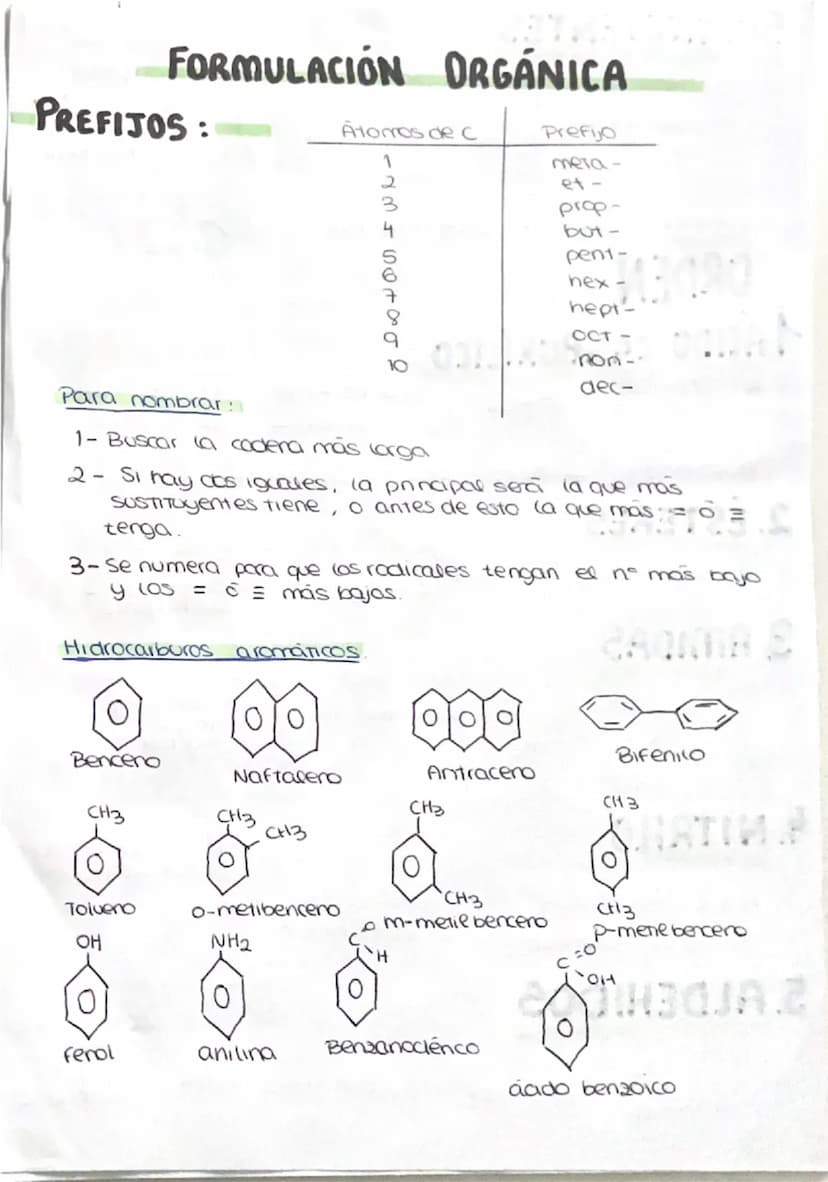 FORMULACIÓN ORGÁNICA
PREFIJOS:
Átomos de C Prefijo
1 meta-
2 et-
3 prop-
4 but-
5 pent-
6 hex-
7 hept-
8 oct-
9 non-
10 dec-
Para nombrar:
1- Buscar la cadena más larga
2- Si hay dos iguales, la principal será la que más
sustituyentes tiene, o antes de esto la que más = ó ≡
tenga.
3- Se numera para que los radicales tengan el nº más bajo
y los = ó ≡ más bajos.
Hidrocarburos aromáticos.
Benceno
Naftaleno
Antraceno
Bifenilo
CH3
CH3
CH3
CH3
CH3
CH3
CH3
Tolueno
o-metilbenceno
m-metilebenceno
p-metilebenceno
OH
NH2
C O
H
C=O
OH
fenol
anilina
ácido benzoico